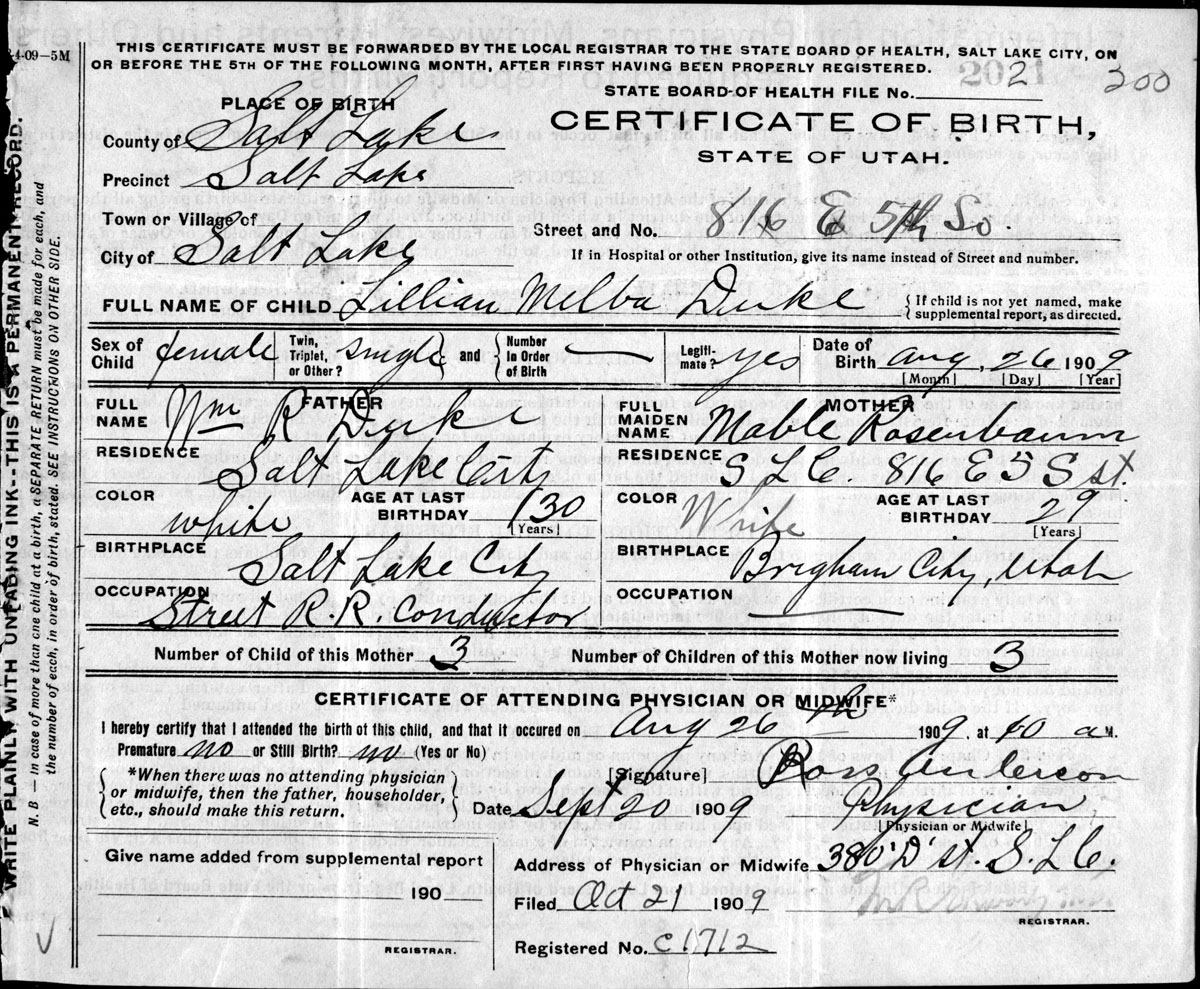 4-09—5M
THIS CERTIFICATE MUST BE FORWARDED BY THE LOCAL REGISTRAR TO THE STATE BOARD OF HEALTH, SALT LAKE CITY, ON
OR BEFORE THE 5TH OF THE FOLLOWING MONTH, AFTER FIRST HAVING BEEN PROPERLY REGISTERED.
2021
300
STATE BOARD OF HEALTH FILE No.
PLACE OF BIRTH
CERTIFICATE OF BIRTH,
STATE OF UTAH.
County of Salt Lake
Precinct Salt Lake
Town or Village of
Street and No. 816 E 5th So.
City of Salt Lake
If in Hospital or other Institution, give its name instead of Street and number.
FULL NAME OF CHILD Lillian Melba Duke
{If child is not yet named, make
supplemental report, as directed.
Sex of Child female Twin, Triplet, or Other? single and {Number In Order of Birth — Legitimate? yes Date of Birth Aug. 26 1909
[Month] [Day] [Year]
FATHER
FULL NAME Wm R Duke
MOTHER
FULL MAIDEN NAME Mable Rosenbaum
RESIDENCE Salt Lake City
RESIDENCE S L C. 816 E 5 S st.
COLOR white AGE AT LAST BIRTHDAY 30 [Years]
COLOR White AGE AT LAST BIRTHDAY 29 [Years]
BIRTHPLACE Salt Lake City
BIRTHPLACE Brigham City, Utah
OCCUPATION Street R.R. Conductor
OCCUPATION —
Number of Child of this Mother 3 Number of Children of this Mother now living 3
CERTIFICATE OF ATTENDING PHYSICIAN OR MIDWIFE*
I hereby certify that I attended the birth of this child, and that it occured on Aug 26th 1909, at 10 a M.
Premature no or Still Birth? no (Yes or No)
{*When there was no attending physician
or midwife, then the father, householder,
etc., should make this return.}
[Signature] Ross Anderson
Date Sept 20 1909 Physician
[Physician or Midwife]
Give name added from supplemental report
190
REGISTRAR.
Address of Physician or Midwife 380 'D' st. S. L C.
Filed Oct 21 1909
REGISTRAR.
Registered No. c1712
WRITE PLAINLY WITH UNFADING INK--THIS IS A PERMANENT RECORD.
N. B — In case of more than one child at a birth, a SEPARATE RETURN must be made for each, and
the number of each, in order of birth, stated. SEE INSTRUCTIONS ON OTHER SIDE.